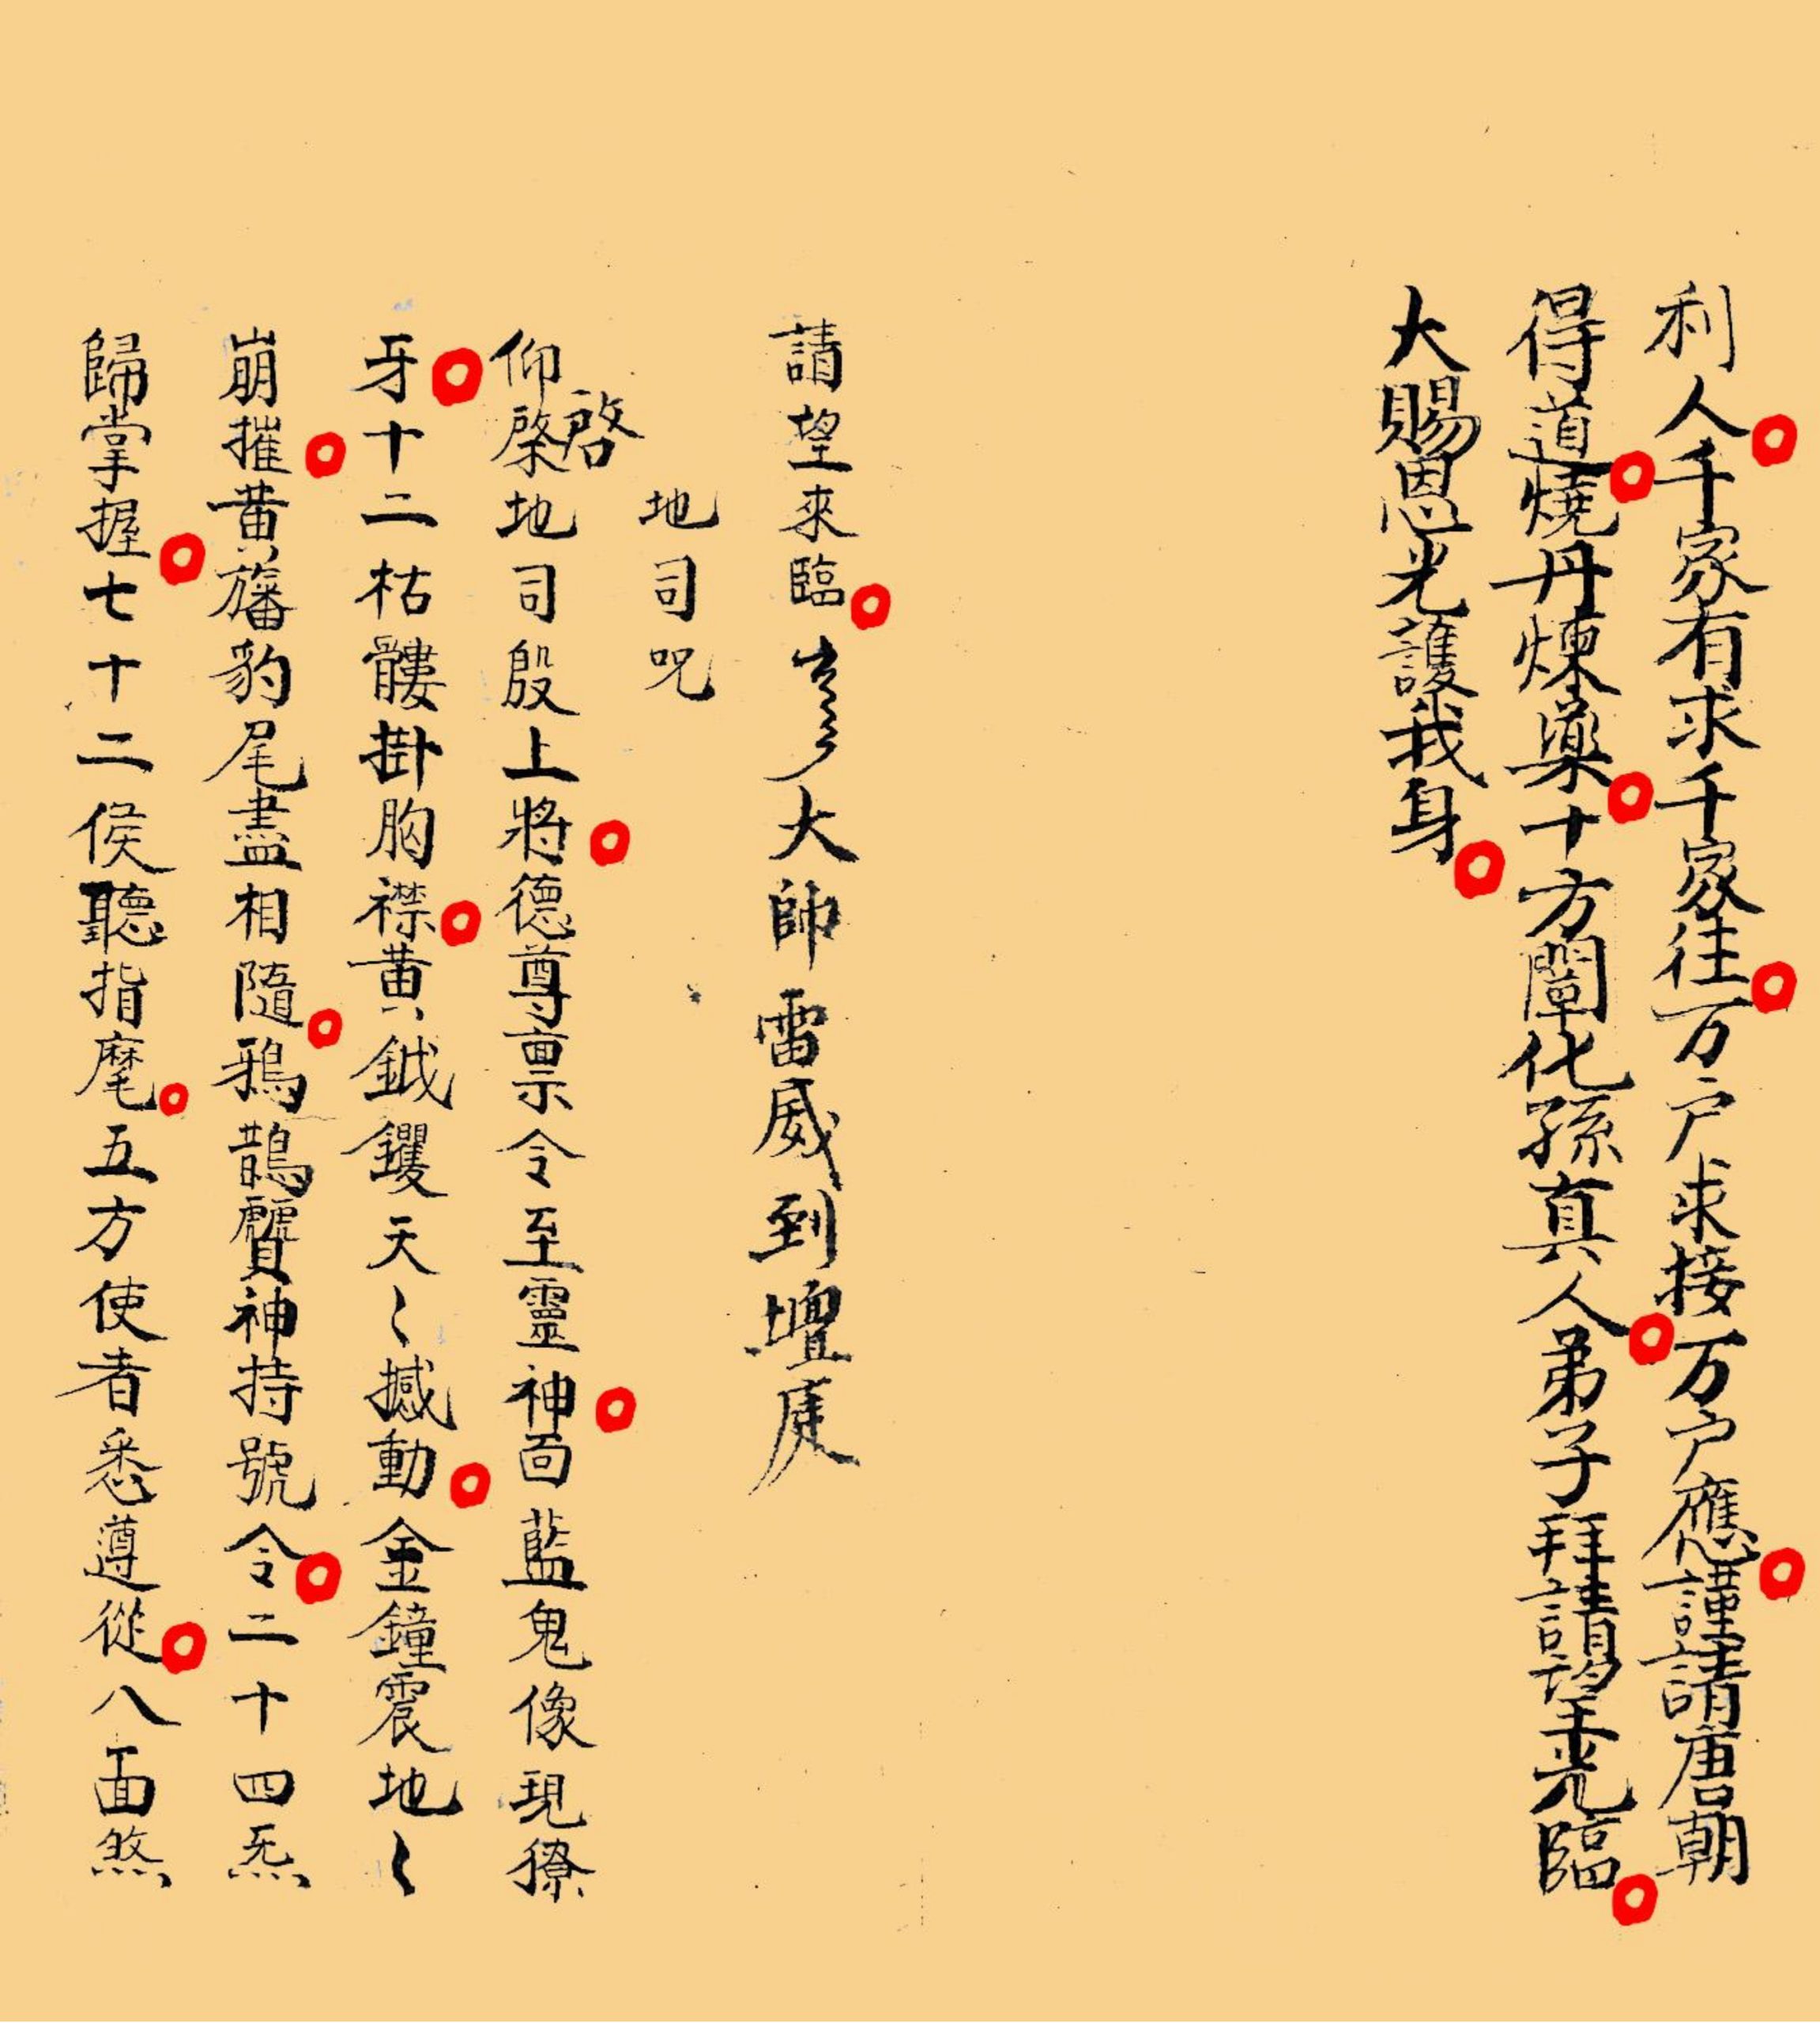 利人千家有求千家往万户求接万户應謹請唐朝
得道燒丹煉藥十方闡化孫真人弟子拜請望光臨
大賜恩光護我身
請望來臨大帥雷威到壇庭
地司咒
仰啓地司殷上將德尊禀令至靈神面藍鬼像現獠
啓
牙十二枯髏掛胸襟黄鉞钁天〻撼動金鐘震地〻
崩摧黄旛豹尾盡相隨鴉鵲神持號令二十四炁
歸掌握七十二侯聽指麾五方使者悉遵從八面煞